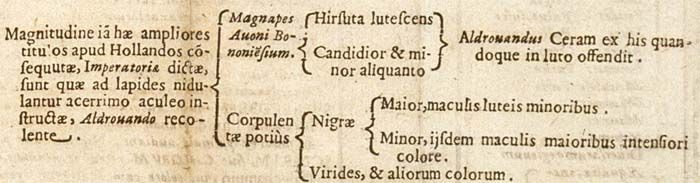 Magnitudine iā hæ ampliores
titulos apud Hollandos cō-
sequutæ, Imperatoriæ dictæ,
sunt quæ ad lapides nidu-
lantur acerrimo aculeo in-
structæ, Aldrouando reco-
lente.
Magnapes
Auoni Bo-
noniēsium.
Hirsuta lutescens
Candidior & mi-
nor aliquanto
Aldrouandus Ceram ex his quan-
doque in luto offendit.
Corpulen
tæ potiùs
Nigræ
Maior, maculis luteis minoribus.
Minor, ijsdem maculis maioribus intensiori
colore.
Virides, & aliorum colorum.